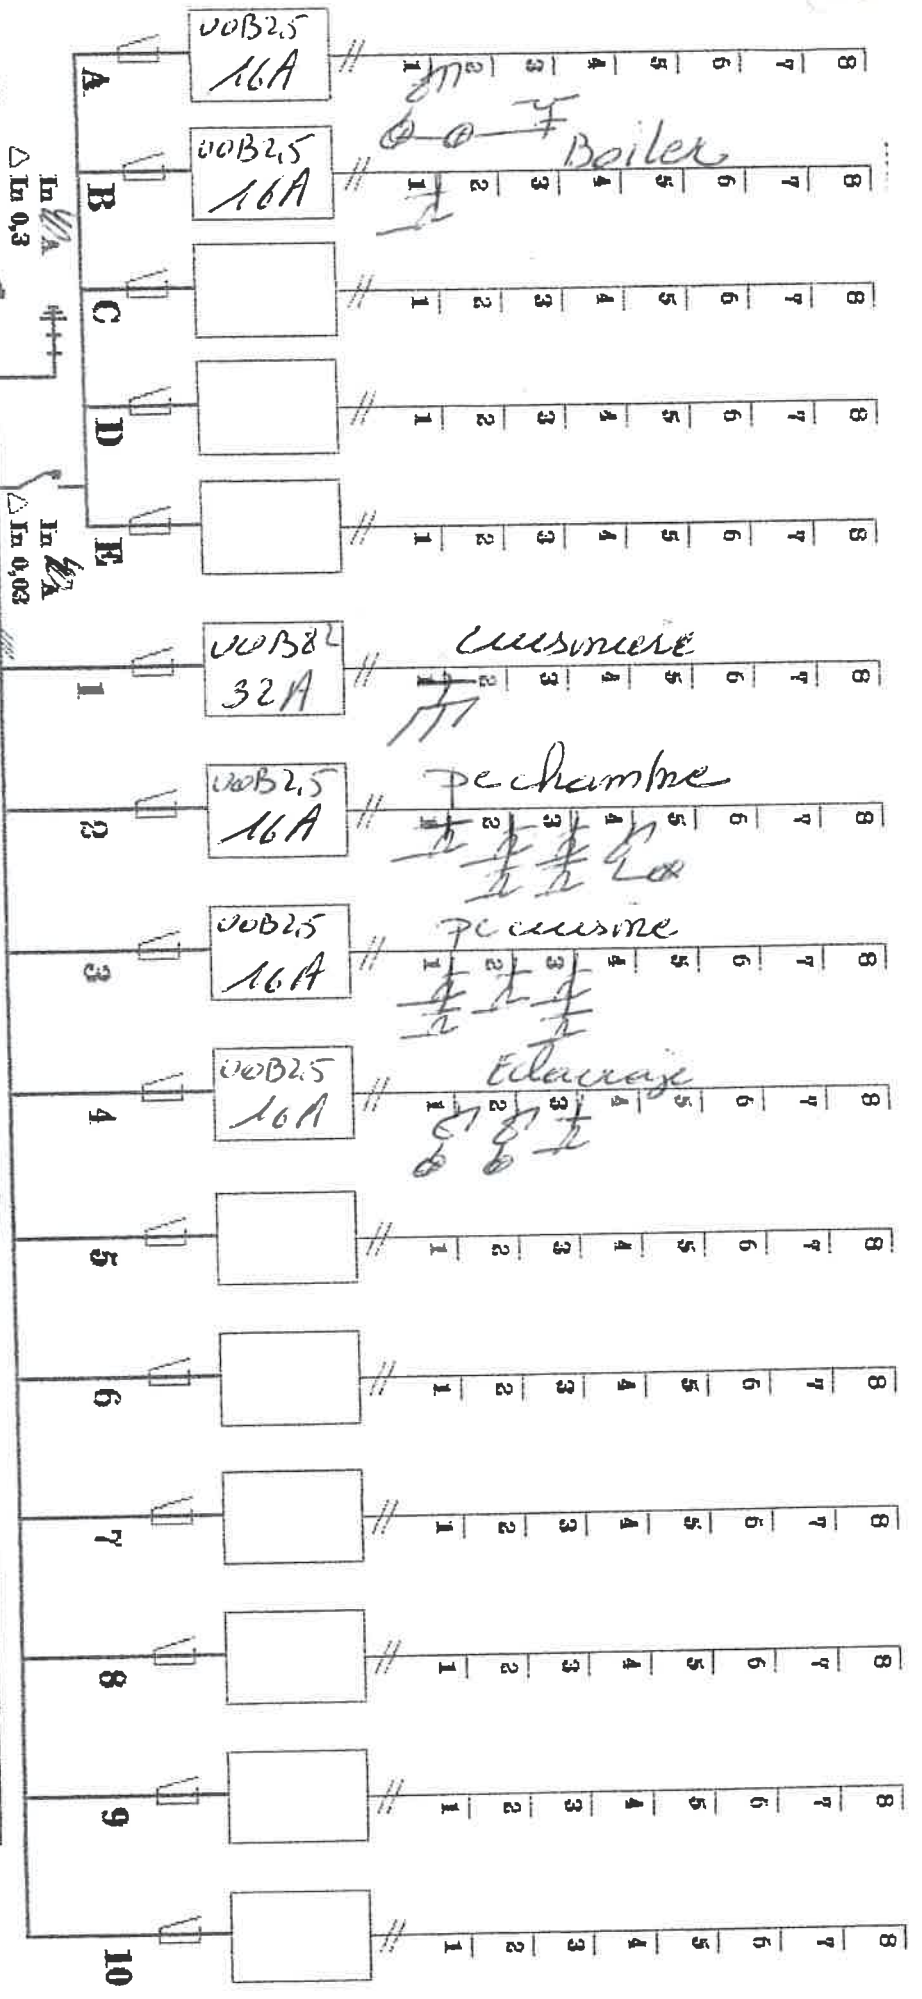 VOB2,5
16A
A
1 2 3 4 5 6 7 8
VOB2,5
16A
Boiler
B
1 2 3 4 5 6 7 8
In A
△ In 0,3
C
1 2 3 4 5 6 7 8
D
1 2 3 4 5 6 7 8
In A
△ In 0,03
E
1 2 3 4 5 6 7 8
VOB
32A
cuisiniere
1
1 2 3 4 5 6 7 8
VOB2,5
16A
pc chambre
2
1 2 3 4 5 6 7 8
VOB2,5
16A
pc cuisine
3
1 2 3 4 5 6 7 8
VOB2,5
16A
Eclairage
4
1 2 3 4 5 6 7 8
5
1 2 3 4 5 6 7 8
6
1 2 3 4 5 6 7 8
7
1 2 3 4 5 6 7 8
8
1 2 3 4 5 6 7 8
9
1 2 3 4 5 6 7 8
10
1 2 3 4 5 6 7 8